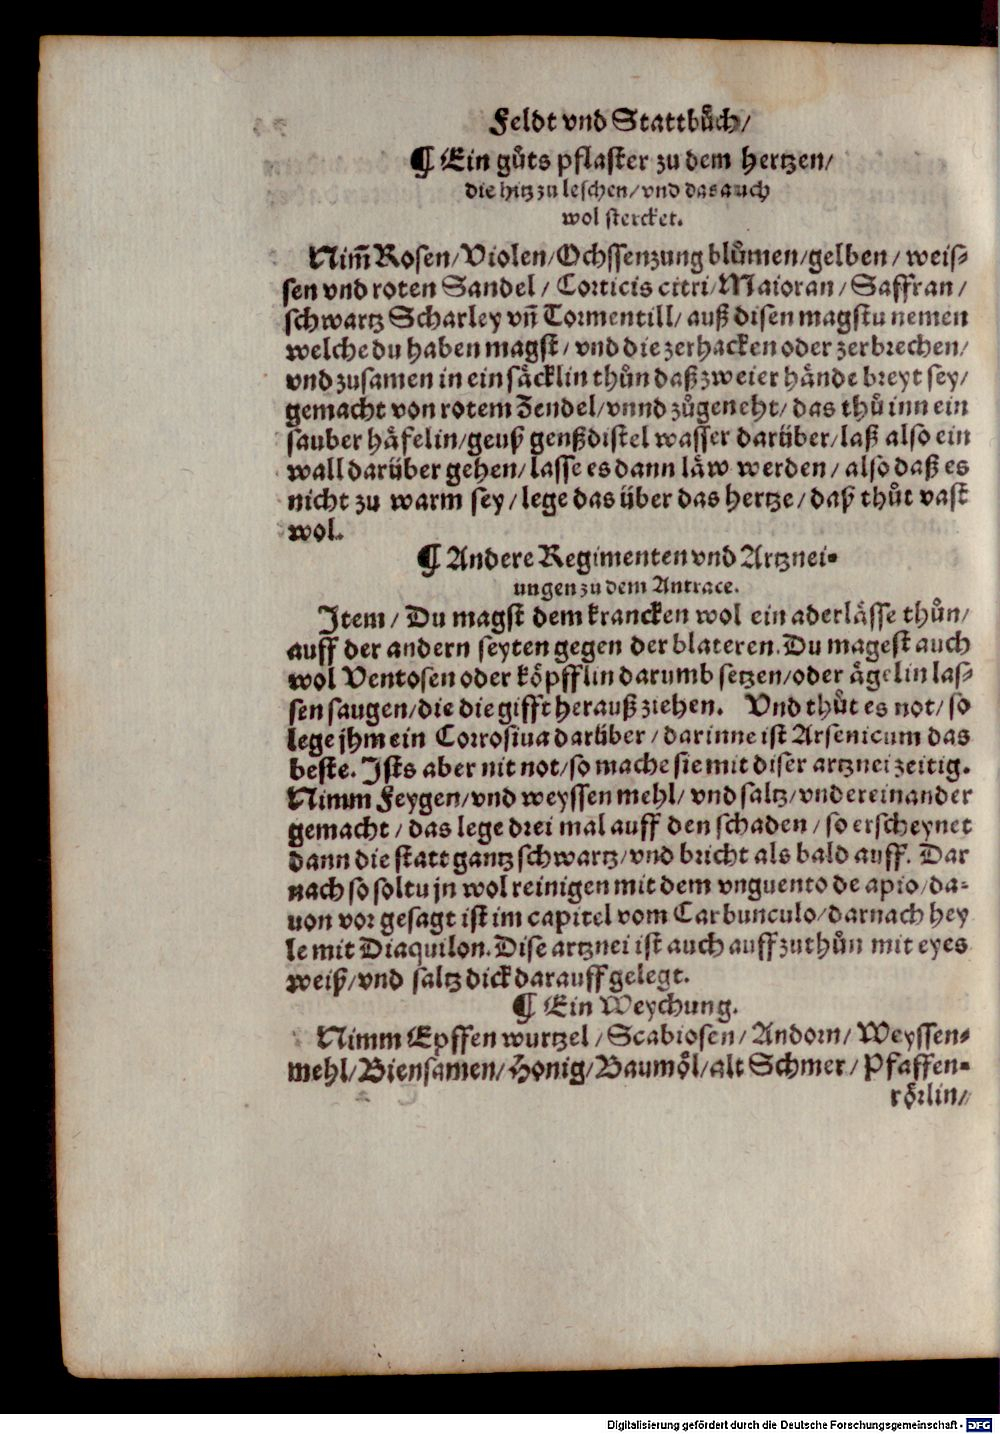 Feldt vnd Stattbuͦch/
¶ Ein guͦts pflaster zu dem hertzen/
die hitz zu leschen/ vnd das auch
wol stercket.
Nim̃ Rosen/ Violen/ Ochssenzung bluͦmen/ gelben/ weis⸗
sen vnd roten Sandel/ Corticis citri/ Maioran/ Saffran/
schwartz Scharley vñ Tormentill/ auß disen magstu nemen
welche du haben magst/ vnd die zerhacken oder zerbrechen/
vnd zusamen in ein säcklin thuͦn daß zweier hände breyt sey/
gemacht von rotem Zendel/ vnnd zuͦgeneht/ das thuͦ inn ein
sauber häfelin/ geuß genßdistel wasser darüber/ laß also ein
wall darüber gehen/ lasse es dann läw werden/ also daß es
nicht zu warm sey/ lege das über das hertze/ daß thuͦt vast
wol.
¶ Andere Regimenten vnd Artznei⸗
ungen zu dem Antrace.
Item/ Du magst dem krancken wol ein aderlässe thuͦn/
auff der andern seyten gegen der blateren. Du magest auch
wol Ventosen oder köpfflin darumb setzen/ oder ägelin las⸗
sen saugen/ die die gifft herauß ziehen. Vnd thuͦt es not/ so
lege jhm ein Corrosiua darüber/ darinne ist Arsenicum das
beste. Ists aber nit not/ so mache sie mit diser artznei zeitig.
Nimm Feygen/ vnd weyssen mehl/ vnd saltz/ vndereinander
gemacht/ das lege drei mal auff den schaden/ so erscheynet
dann die statt gantz schwartz/ vnd bricht als bald auff. Dar
nach so soltu jn wol reinigen mit dem vnguento de apio/ da⸗
uon vor gesagt ist im capitel vom Carbunculo/ darnach hey
le mit Diaquilon. Dise artznei ist auch auffzuthuͦn mit eyes
weiß/ vnd saltz dick darauff gelegt.
¶ Ein Weychung.
Nimm Epffen wurtzel/ Scabiosen/ Andorn/ Weyssen⸗
mehl/ Biensamen/ Honig/ Baumöl/ alt Schmer/ Pfaffen⸗
rörlin/
Digitalisierung gefördert durch die Deutsche Forschungsgemeinschaft - DFG